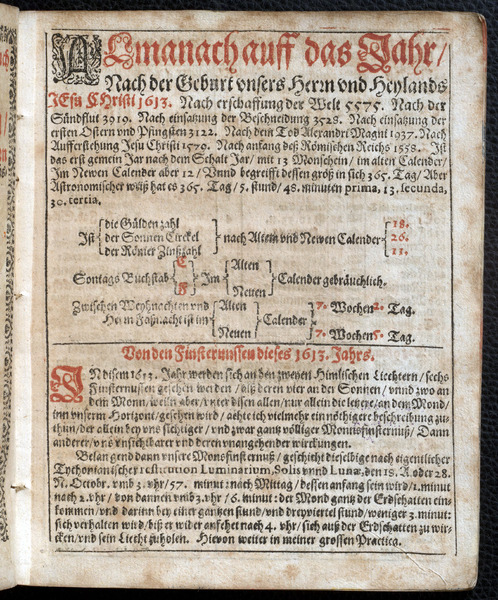 Almanach auff das Jahr/
Nach der Geburt vnsers Herrn vnd Heylands
JEsu CHristi 1613. Nach erschaffung der Welt 5575. Nach der
Sündflut 3919. Nach einsatzung der Beschneidung 3528. Nach einsatzung der
ersten Ostern vnd Pfingsten 3122. Nach dem Tod Alexandri Magni 1937. Nach
Aufferstehung Jesu Christi 1579. Nach anfang deß Römischen Reichs 1558. Ist
das erst gemein Jar nach dem Schalt Jar/ mit 13 Monschein/ im alten Calender/
Im Newen Calender aber 12/ Vnnd begreifft dessen größ in sich 365. Tag/ Aber
Astronomischer weiß hat es 365. Tag/ 5. stund/ 48. minuten prima, 13. secunda,
30. tertia.
Ist die Gülden zahl der Sonnen Circkel der Römer Zinßzahl nach Altem vnd Newen Calender 18. 26. 11.
Sontags Buchstab C F Im Alten Newen Calender gebräuchlich.
Zwischen Weyhnachten vnd Herrn Faßnacht ist im Alten Newen Calender 7. Wochen 2. Tag. 7. Wochen 5. Tag.
Von den Finsternussen dieses 1613. Jahrs.
IN disem 1613. Jahr werden sich an den zweyen Himlischen Liechtern/ sechs
Finsternussen gesehen werden/ diß deren vier an der Sonnen/ vnnd zwo an
dem Monn/ weiln aber/ vnter disen allen/ nur allein die letzte/ an dem Mond/
inn vnserm Horizont/ gesehen wird/ achte ich vielmehr ein nöthigere beschreibung zu
thun/ der allein bey vns sichtiger/ vnd zwar gantz völliger Monnsfinsternuß/ Dann
anderer/ vns vnsichtbarer vnd deren vnangehender wirckungen.
Belangend dann vnsere Monsfinsternuß/ geschicht dieselbige nach eigentlicher
Tychonianischer restitution Luminarium, Solis vnnd Lunæ, den 18. A. oder 28.
N. Octobr. vmb 3. vhr/ 57. minut: nach Mittag/ dessen anfang sein wird/ 2. minut
nach 2. vhr/ von dannen vmb 3. vhr/ 6. minut: der Mond gantz der Erdschatten ein-
kommen/ vnd darinn bey einer gantzen stund/ vnd dreyviertel stund/ weniger 3. minut:
sich verhalten wird/ biß er wider anfehet nach 4. vhr/ sich auß der Erdschatten zu wir-
cken/ vnd sein Liecht zuholen. Hievon weiter in meiner grossen Practica.